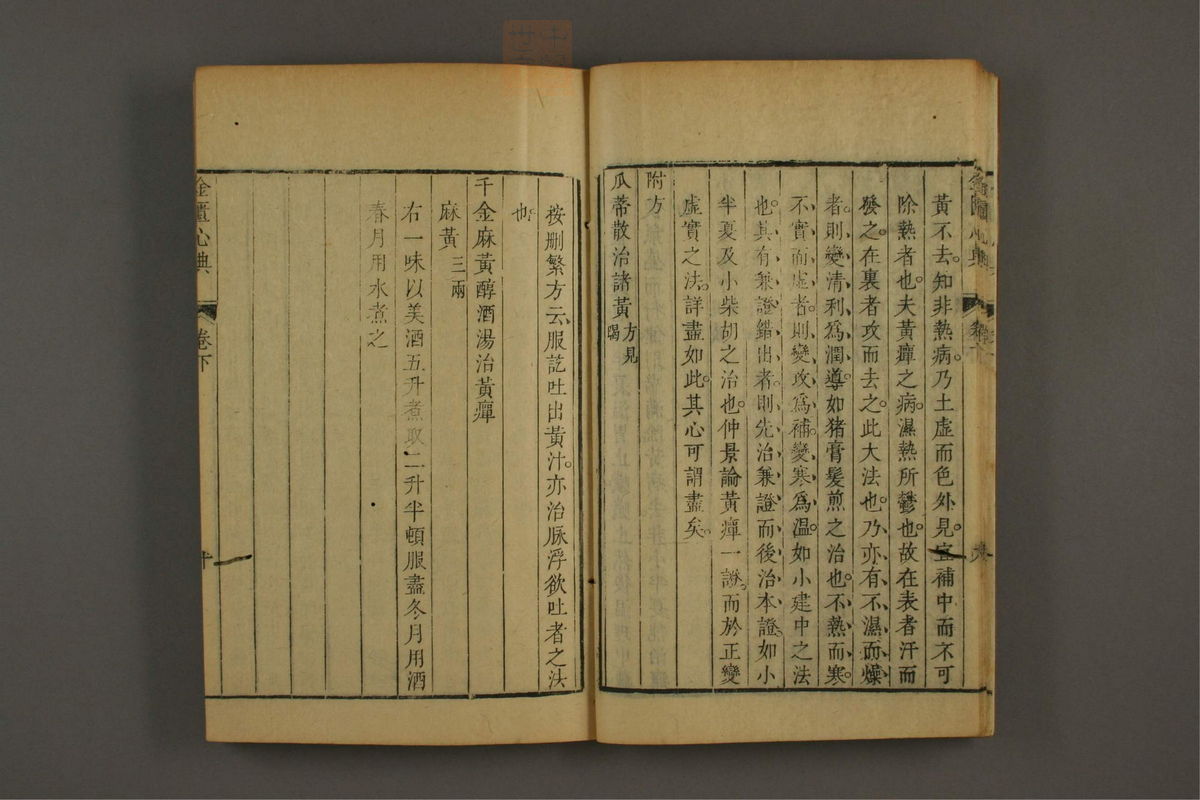 黃不去知非熱病乃土虛而色外見宜補中而不可
除熱者也夫黃癉之病濕熱所鬱也故在表者汗而
發之在裏者攻而去之此大法也乃亦有不濕而燥
者則變清利爲潤導如猪膏髮煎之治也不熱而寒
不實而虛者則變攻爲補變寒爲温如小建中之法
也其有兼證錯出者則先治兼證而後治本證如小
半夏及小柴胡之治也仲景論黃癉一證而於正變
虛實之法詳盡如此其心可謂盡矣
附方
瓜蒂散治諸黃 方見暍
按刪繁方云服訖吐出黃汁亦治脈浮欲吐者之法
也
千金麻黃醇酒湯治黃癉
麻黃 三兩
右一味以美酒五升煮取二升半頓服盡冬月用酒
春月用水煮之
金匱心典 卷下 十